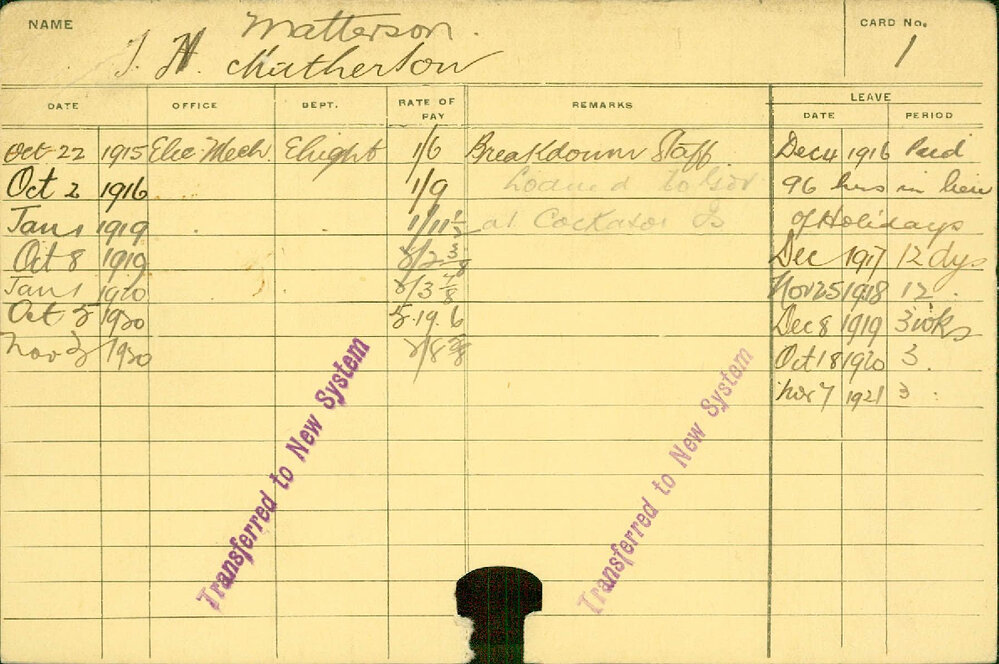 NAME
Matterson.
J. H. Mutherson
CARD No.
1
DATE OFFICE DEPT. RATE OF PAY REMARKS LEAVE
DATE PERIOD
Oct 22 1915 Elec Mech. Elight 1/6 Breakdown Staff. Dec 4 1916 Paid
Oct 2 1916 1/9 Loaned to Gov 96 hrs in lieu
Jan 1 1919 1/11½ at Cockatoo Is of Holidays
Oct 8 1919 2/2⅜ Dec 1917 12 dys
Jan 1 1920 2/3⅞ Nov 25 1918 12.
Oct 5 1920 5.19.6 Dec 8 1919 3 wks
Nov 3 1920 Oct 18 1920 3.
Nov 7 1921 3
Transferred to New System
Transferred to New System